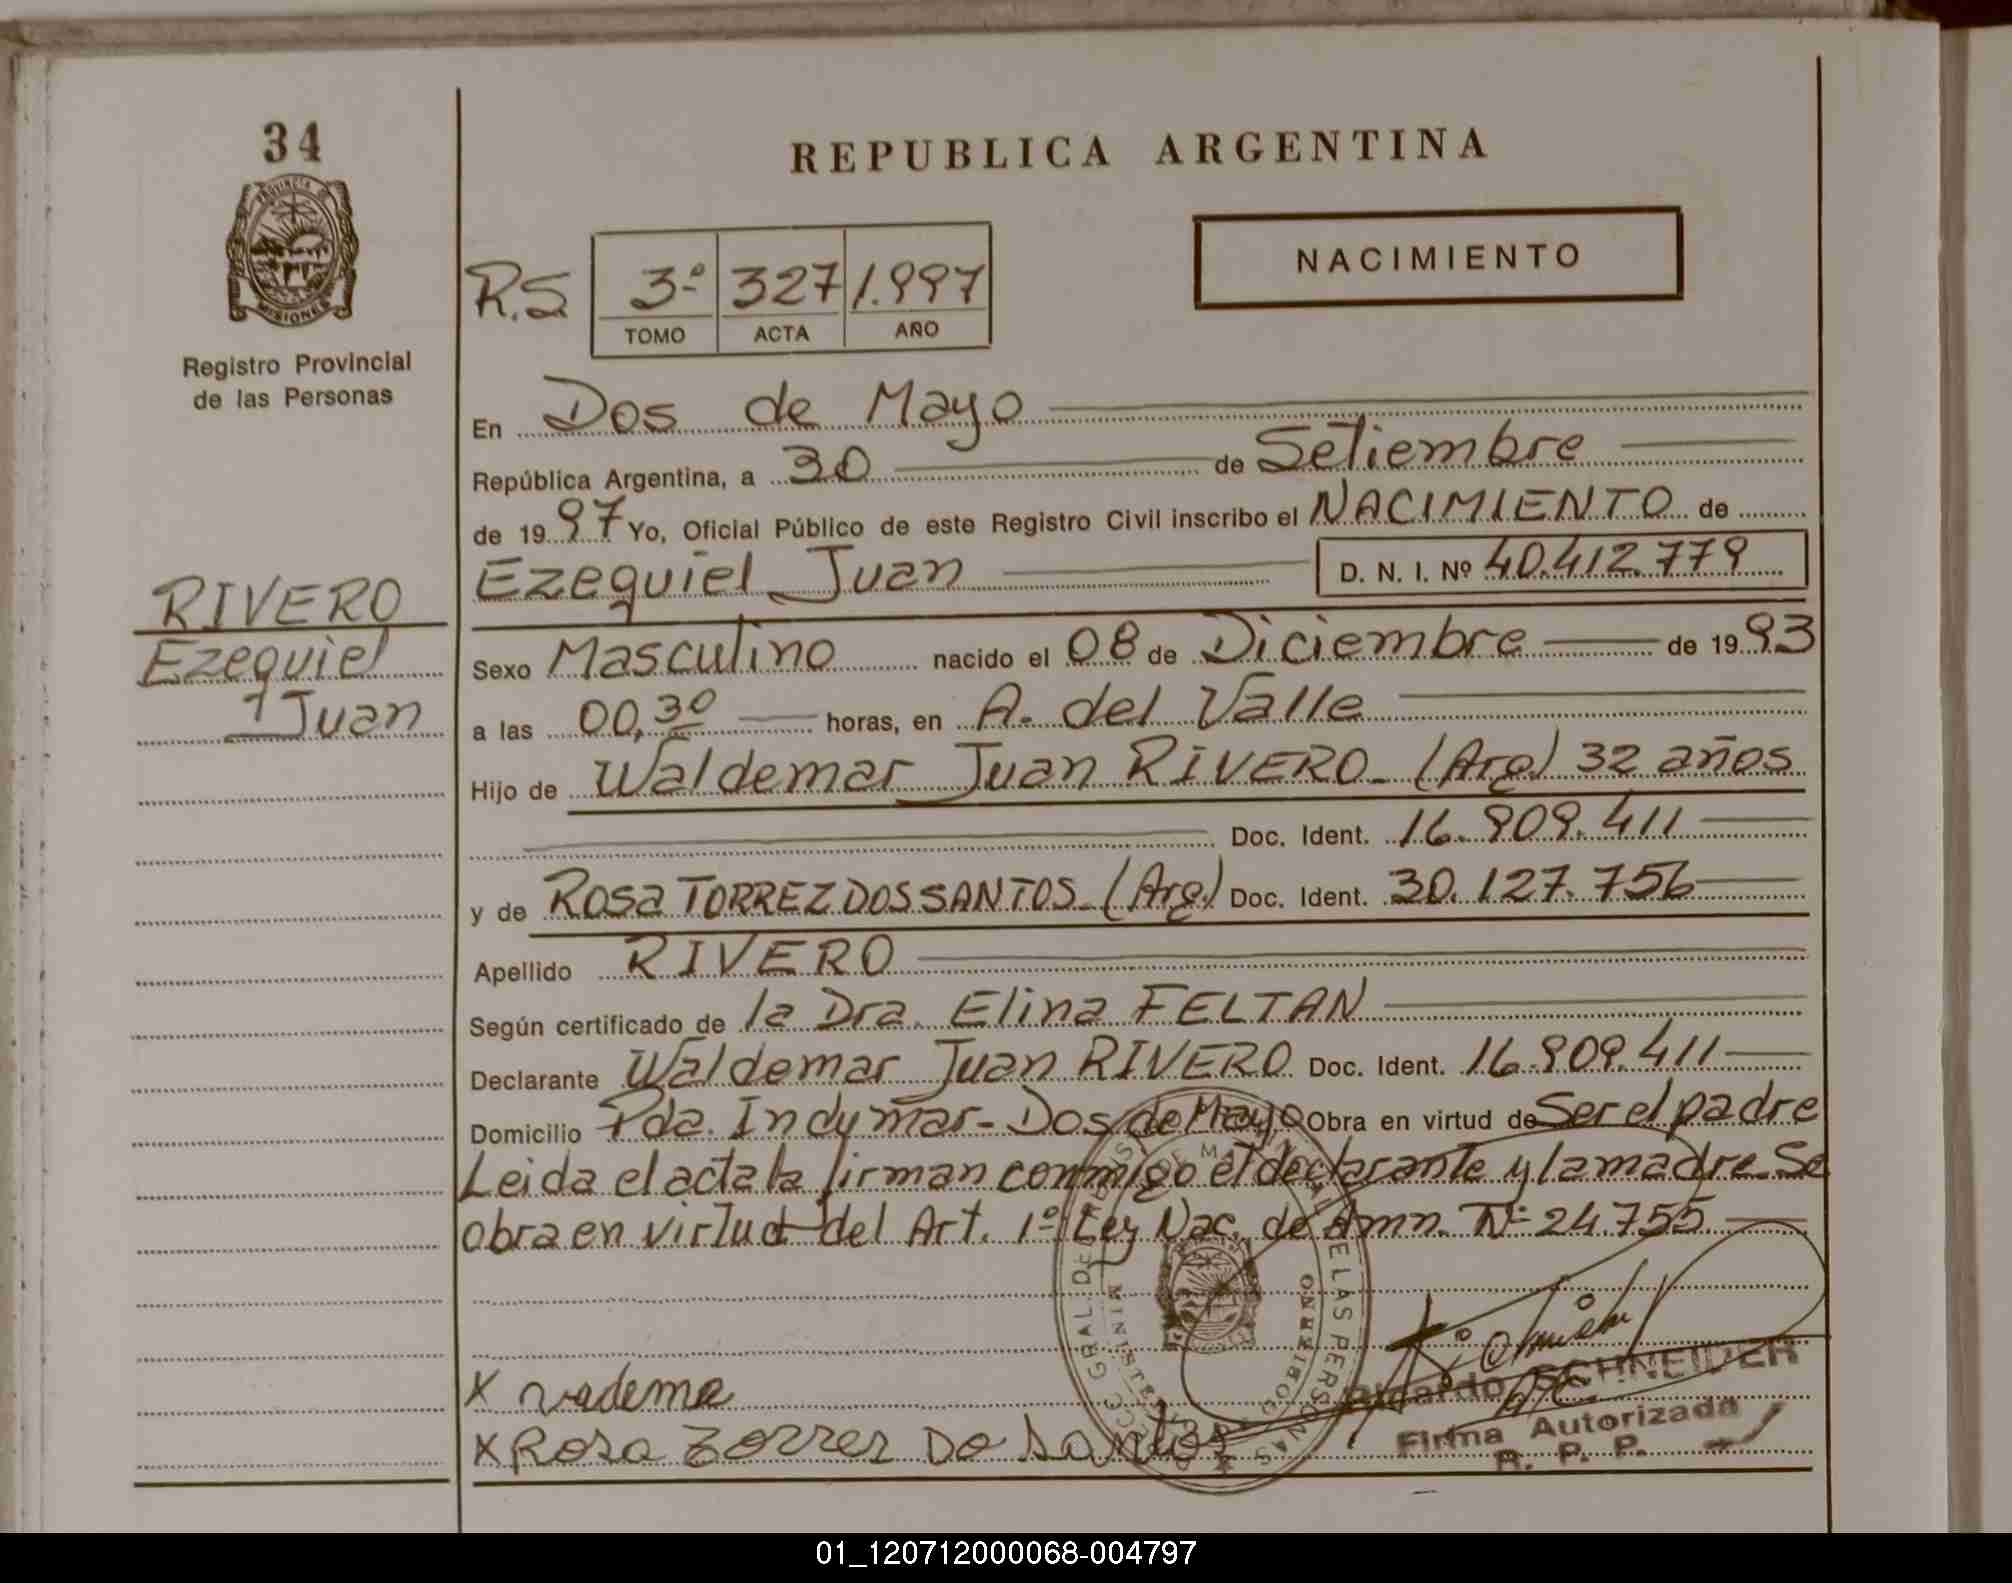 34
REPUBLICA ARGENTINA
PROVINCIA DE
MISIONES
Registro Provincial
de las Personas
NACIMIENTO
R.S 3º 327 1.997
TOMO ACTA AÑO
En Dos de Mayo
República Argentina, a 30 de Setiembre
de 1997 Yo, Oficial Público de este Registro Civil inscribo el NACIMIENTO de
Ezequiel Juan D. N. I. Nº 40.412.779
RIVERO
Ezequiel
Juan
Sexo Masculino nacido el 08 de Diciembre de 1993
a las 00,30 horas, en A. del Valle
Hijo de Waldemar Juan RIVERO - (Arg) 32 años
Doc. Ident. 16.909.411
y de Rosa TORREZ DOS SANTOS - (Arg.) Doc. Ident. 30.127.756
Apellido RIVERO
Según certificado de la Dra. Elina FELTAN
Declarante Waldemar Juan RIVERO Doc. Ident. 16.909.411
Domicilio Pda. Indymar - Dos de Mayo Obra en virtud de Ser el padre
Leida el acta la firman conmigo el declarante y la madre - Se
obra en virtud del Art. 1º Ley Nac. de Amn. Nº 24.755
X vademe
Ricardo SCHNEIDER
Firma Autorizada
R. P. P.
X Rosa Zorrez Do Santos
01_120712000068-004797